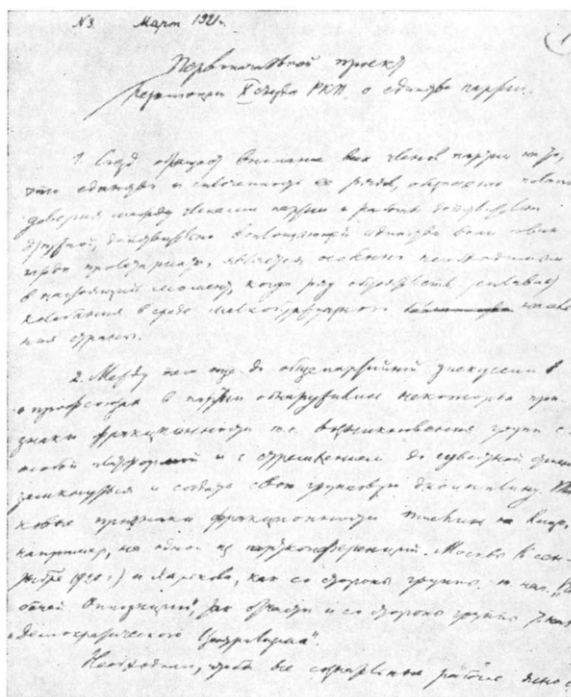 № 3. Март 1921 г.
1
Первоначальный проект
резолюции X съезда РКП о единстве партии.
1. Съезд обращает внимание всех членов партии на то,
что единство и сплоченность ее рядов, обеспечение полного
доверия между членами партии и работы действительно
дружной, действительно воплощающей единство воли аван-
гарда пролетариата, является особенно необходимым
в настоящий момент, когда ряд обстоятельств усиливает
колебания в среде мелкобуржуазного населе-
ния страны.
2. Между тем еще до общепартийной дискуссии
о профсоюзах в партии обнаружились некоторые при-
знаки фракционности т.е. возникновения групп с
особыми платформами и с стремлением до известной степени
замкнуться и создать свою групповую дисциплину. Та-
ковые признаки фракционности
например, на одной из партконференций в Москве (в
1920 г.) и Харькове, как со стороны группы т. наз. "Ра-
бочей Оппозиции", так отчасти и со стороны группы т. наз.
"Демократического Централизма".
Необходимо, чтобы все сознательные рабочие ясно